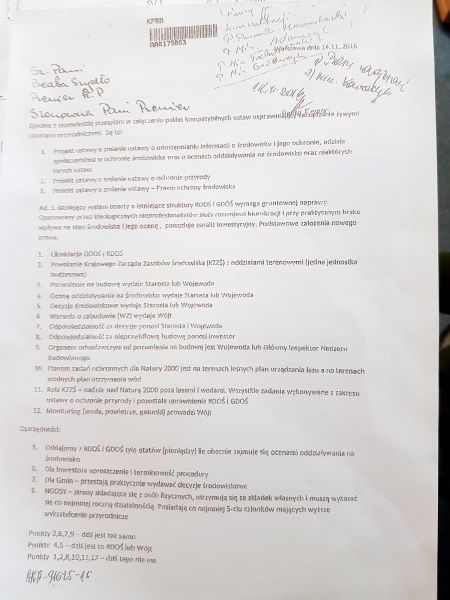 KPRM
AAA175863
Warszawa dnia 14.11.2016
Sz. Pani
Beata Szydło
Premier RP
Szanowna Pani Premier
Zgodnie z zapowiedzią przesyłam w załączeniu pakiet kompatybilnych ustaw usprawniających zarządzanie żywymi
zasobami przyrodniczymi. Są to:
1. Projekt ustawy o zmianie ustawy o udostępnianiu informacji o środowisku i jego ochronie, udziale
społeczeństwa w ochronie środowiska oraz o ocenach oddziaływania na środowisko oraz niektórych
innych ustaw.
2. Projekt ustawy o zmianie ustawy o ochronie przyrody
3. Projekt ustawy o zmianie ustawy – Prawo ochrony środowiska
Ad. 1. Istniejący system oparty o istniejące struktury RDOŚ i GDOŚ wymaga gruntownej naprawy.
Opanowany przez ideologicznych nieprofesjonalistów służy rozwojowi biurokracji i przy praktycznym braku
wpływu na stan środowiska i jego ocenę , powoduje paraliż inwestycyjny. Podstawowe założenia nowego
prawa.
1. Likwidacja GDOŚ i RDOŚ
2. Powołanie Krajowego Zarządu Zasobów Środowiska (KZZŚ) z oddziałami terenowymi (jedna jednostka
budżetowa)
3. Pozwolenie na budowę wydaje Starosta lub Wojewoda
4. Ocenę oddziaływania na środowisko wydaje Starosta lub Wojewoda
5. Decyzje środowiskowe wydaje Starosta lub Wojewoda
6. Warunki o zabudowie (WZ) wydaje Wójt
7. Odpowiedzialność za decyzje ponosi Starosta i Wojewoda
8. Odpowiedzialność za nieprawidłową budowę ponosi inwestor
9. Organem odwoławczym od pozwolenia na budowę jest Wojewoda lub Główny Inspektor Nadzoru
Budowlanego
10. Planem zadań ochronnych dla Natury 2000 jest na terenach leśnych plan urządzania lasu a na terenach
wodnych plan utrzymania wód
11. Rola KZZŚ – nadzór nad Naturą 2000 poza lasami i wodami. Wszystkie zadania wykonywane z zakresu
ustawy o ochronie przyrody i pozostałe uprawnienia RDOŚ i GDOŚ
12. Monitoring (woda, powietrze, gatunki) prowadzi Wójt
Oszczędności:
5. Oddajemy z RDOŚ i GDOŚ tyle etatów (pieniędzy) ile obecnie zajmuje się ocenami oddziaływania na
środowisko
6. Dla Inwestora uproszczenie i terminowość procedury
7. Dla Gmin – przestają praktycznie wydawać decyzje środowiskowe
8. NGOSY – strony składające się z osób fizycznych, utrzymują się ze składek własnych i muszą wykazać
się co najmniej roczną działalnością. Posiadają co najmniej 5-ciu członków mających wyższe
wykształcenie przyrodnicze
Punkty 3,6,7,9 – dziś jest tak samo
Punkty 4,5 – dziś jest to RDOŚ lub Wójt
Punkty 1,2,8,10,11,12 – dziś tego nie ma